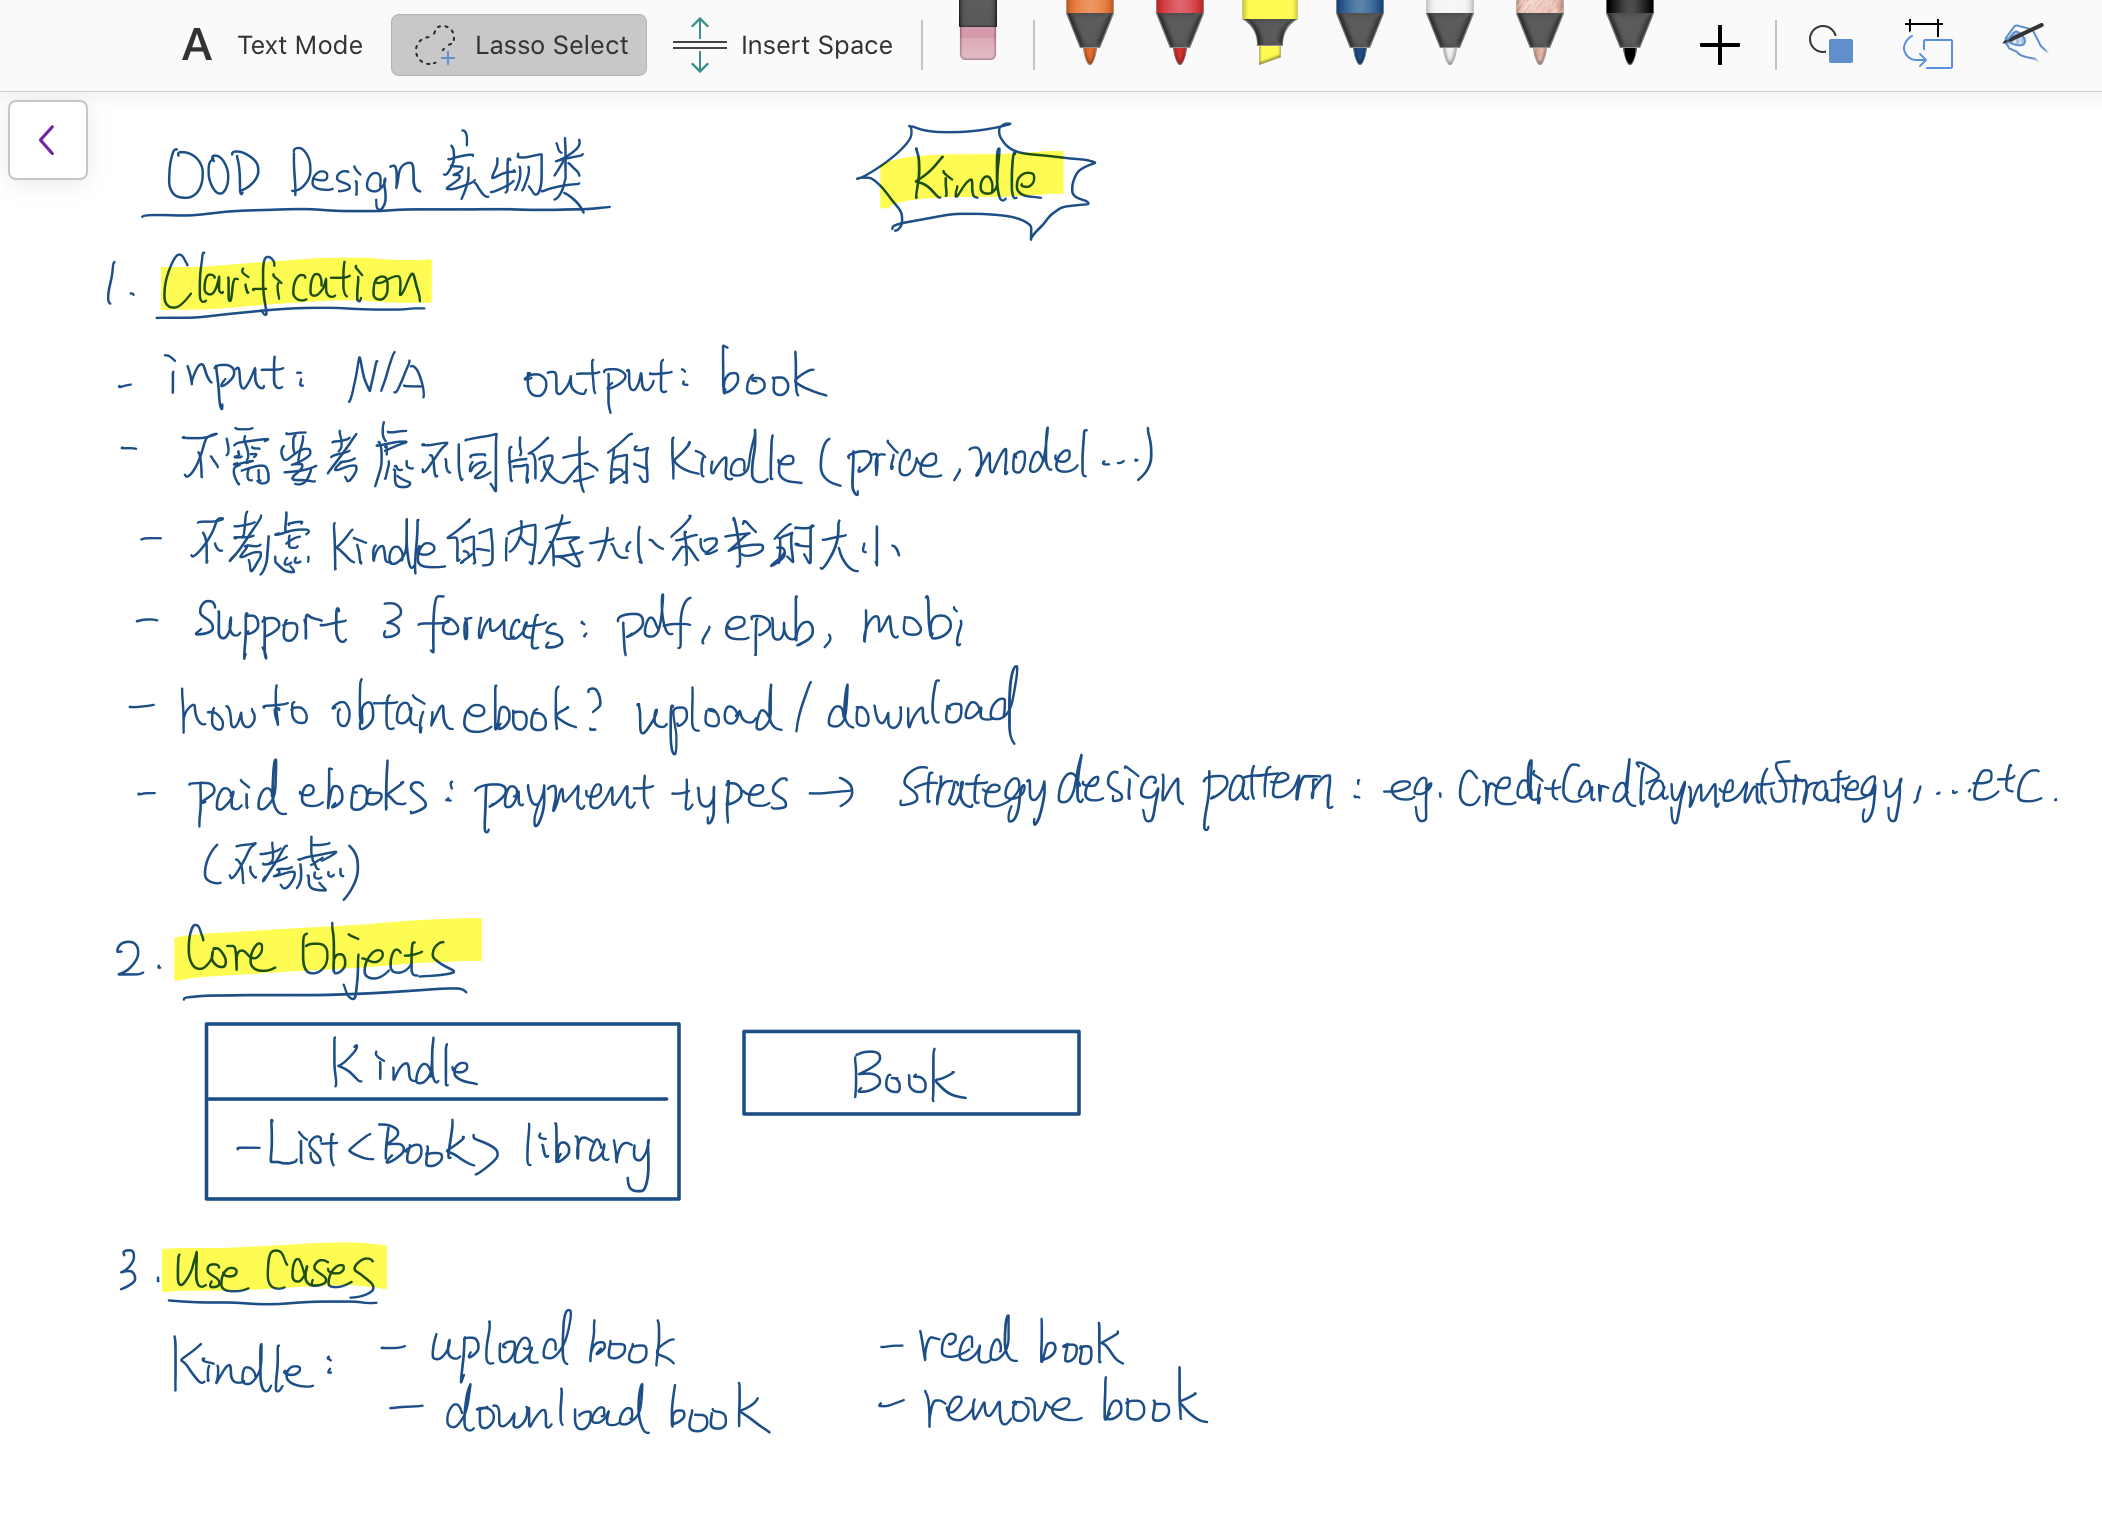 A Text Mode Lasso Select Insert Space
OOD Design 实物类 Kindle
1. Clarification
- input: N/A output: book
- 不需要考虑不同版本的Kindle (price, model...)
- 不考虑Kindle的内存大小和书的大小
- Support 3 formats: pdf, epub, mobi
- how to obtain ebook? upload / download
- paid ebooks: payment types → Strategy design pattern: eg. CreditCardPaymentStrategy, ...etc.
(不考虑)
2. Core Objects
Kindle Book
- List<Book> library
3. Use Cases
Kindle: - upload book - read book
- download book - remove book